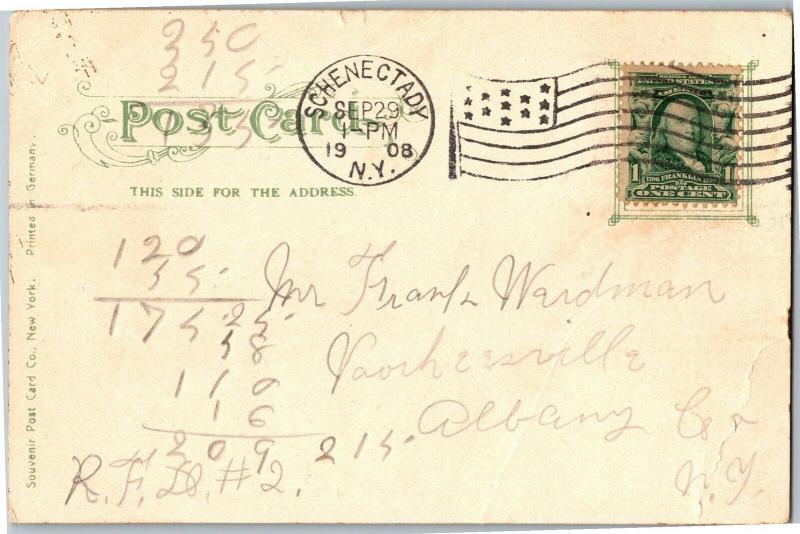 350
215
135
Post Card
THIS SIDE FOR THE ADDRESS.
SCHENECTADY
SEP 29
1-PM
1908
N.Y.
SERIES 1902
UNITED STATES OF
AMERICA
1 1706 FRANKLIN 1790 1
POSTAGE
ONE CENT
Souvenir Post Card Co., New York. Printed in Germany.
120
55.
175
25.
58
110
16
209 215.
Mr Frank Wardman
Voorheesville
Albany Co
N.Y.
R.F.D. #2.